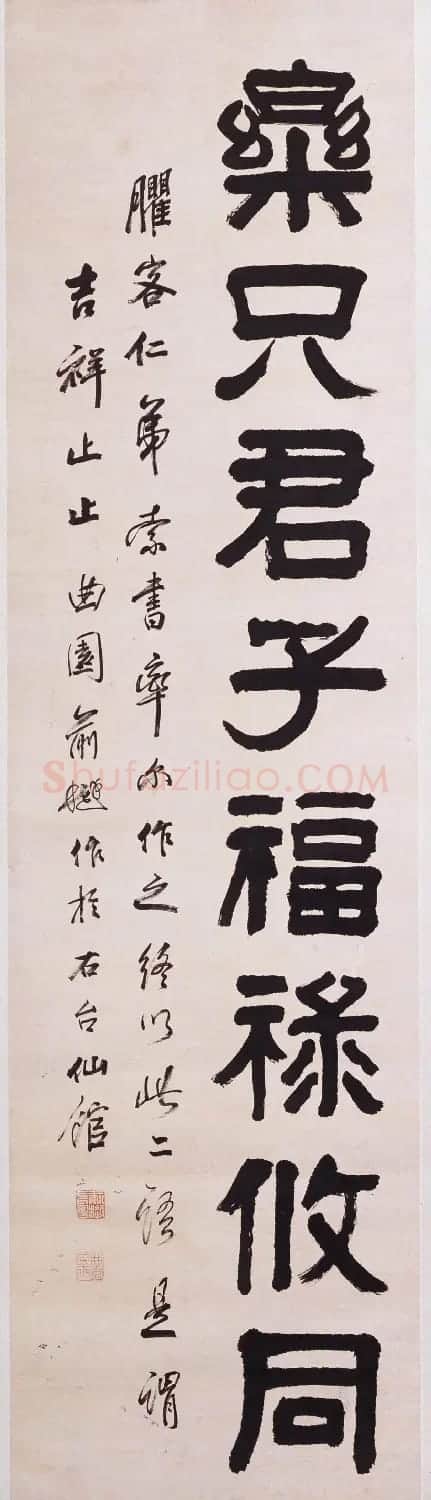 樂只君子福祿攸同
臞客仁弟索書率尔作之終以此二語是謂
吉祥止止曲園俞樾作於右台仙館
Shufaziliao.COM